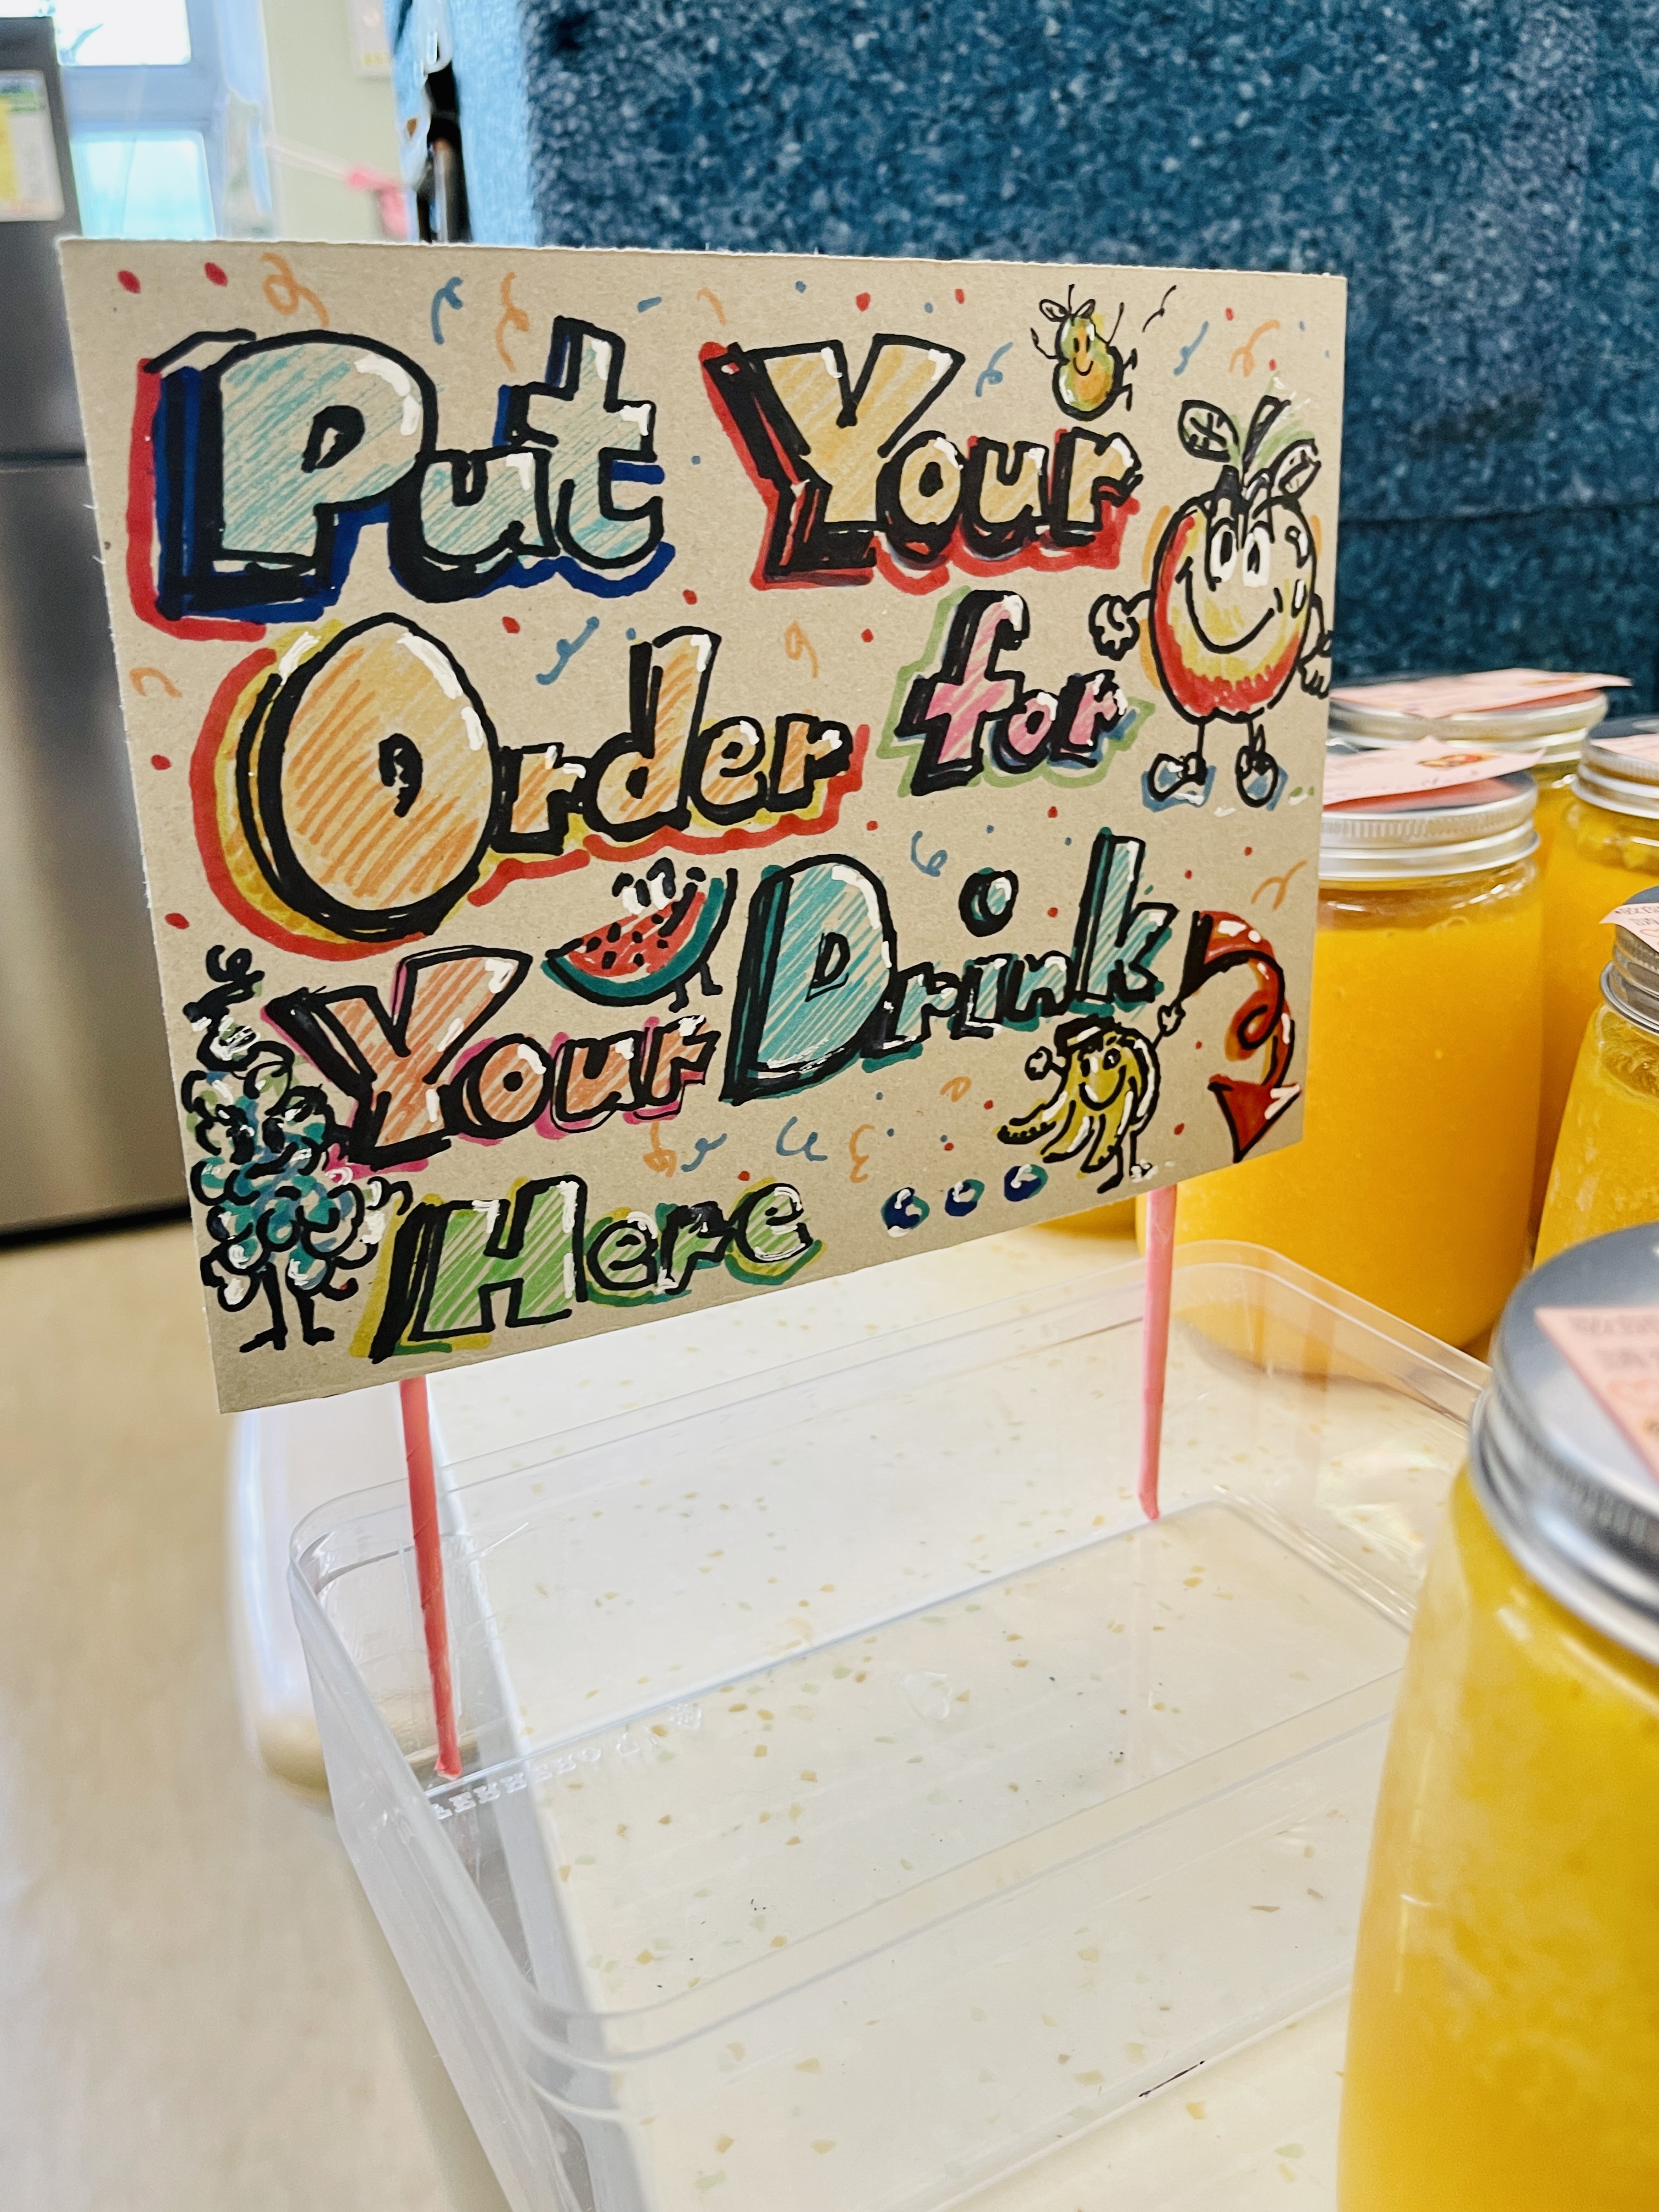 Put Your
Order for
Your Drink
Here ...